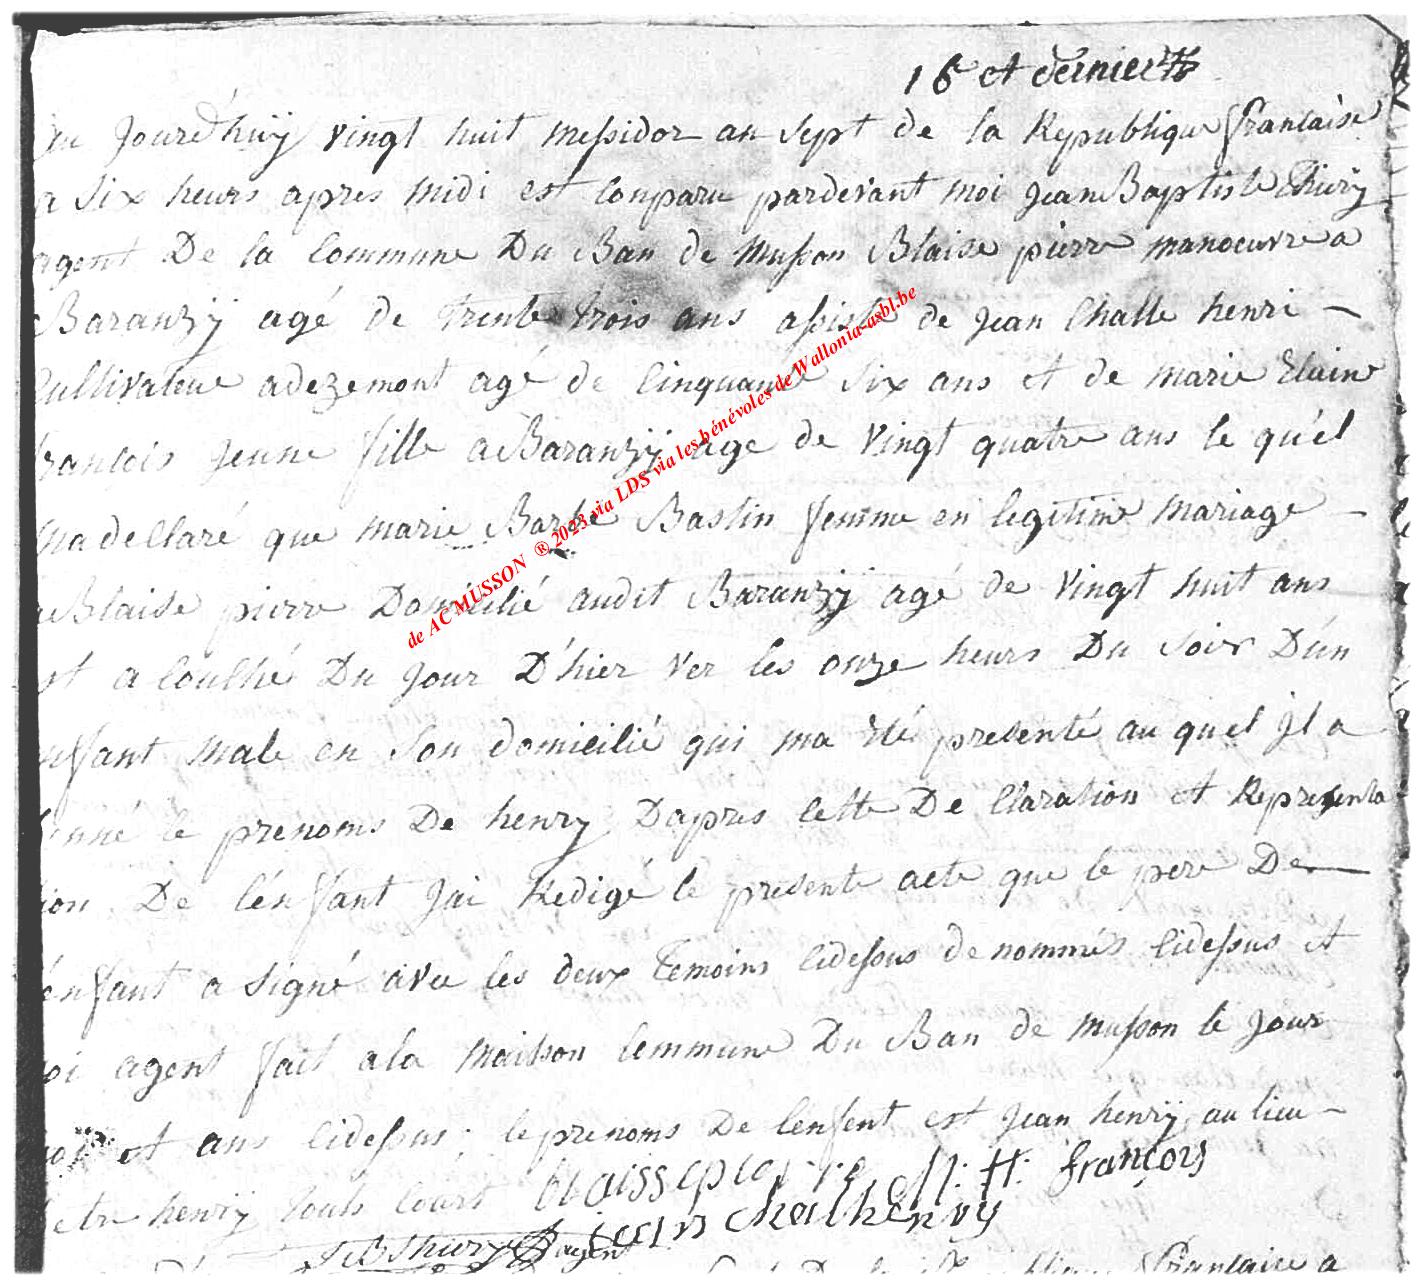 16e et dernier
Jourd'huÿ vingt huit messidor an sept de la Republique francaise
a six heurs apres midi est conparu pardevant moi Jean Baptiste Thiery
agent De la Commune Du Ban de Musson Blaise pierre manoeuvre a
Baranzÿ agé de trente trois ans assisté de Jean Challe henri –
Cultivateur adezemont agé de Cinquante six ans et de marie Elaine
françois jeune fille a Baranzÿ age de vingt quatre ans le quél
ma declaré que marie Barbe Bastin femme en legitime mariage –
a Blaise pierre Domicilié audit Baranzÿ agé de vingt huit ans
est a Couché Du jour D'hier ver les onze heurs Du soir D'un
enfant male en son domicilié qui ma été presenté au quel Jl a
donné le prenoms De henry Dapres cette De Claration et Representa
tion De l'énfant Jai Redigé le presente acte que le pere De
l'énfant a signé avec les deux temoins cidessus denommés cidessus et
moi agent fait a la maison Commune Du Ban de musson le jour
mois et ans cidessus; le prenoms De l'enfent est Jean henrÿ au lieu –
detre henrÿ touts court blaisse pierre M: H: françois
JB Thiery agent iean chalhenry
francaise a
de AC MUSSON ® 2023 via LDS via les bénévoles de Wallonia-asbl.be